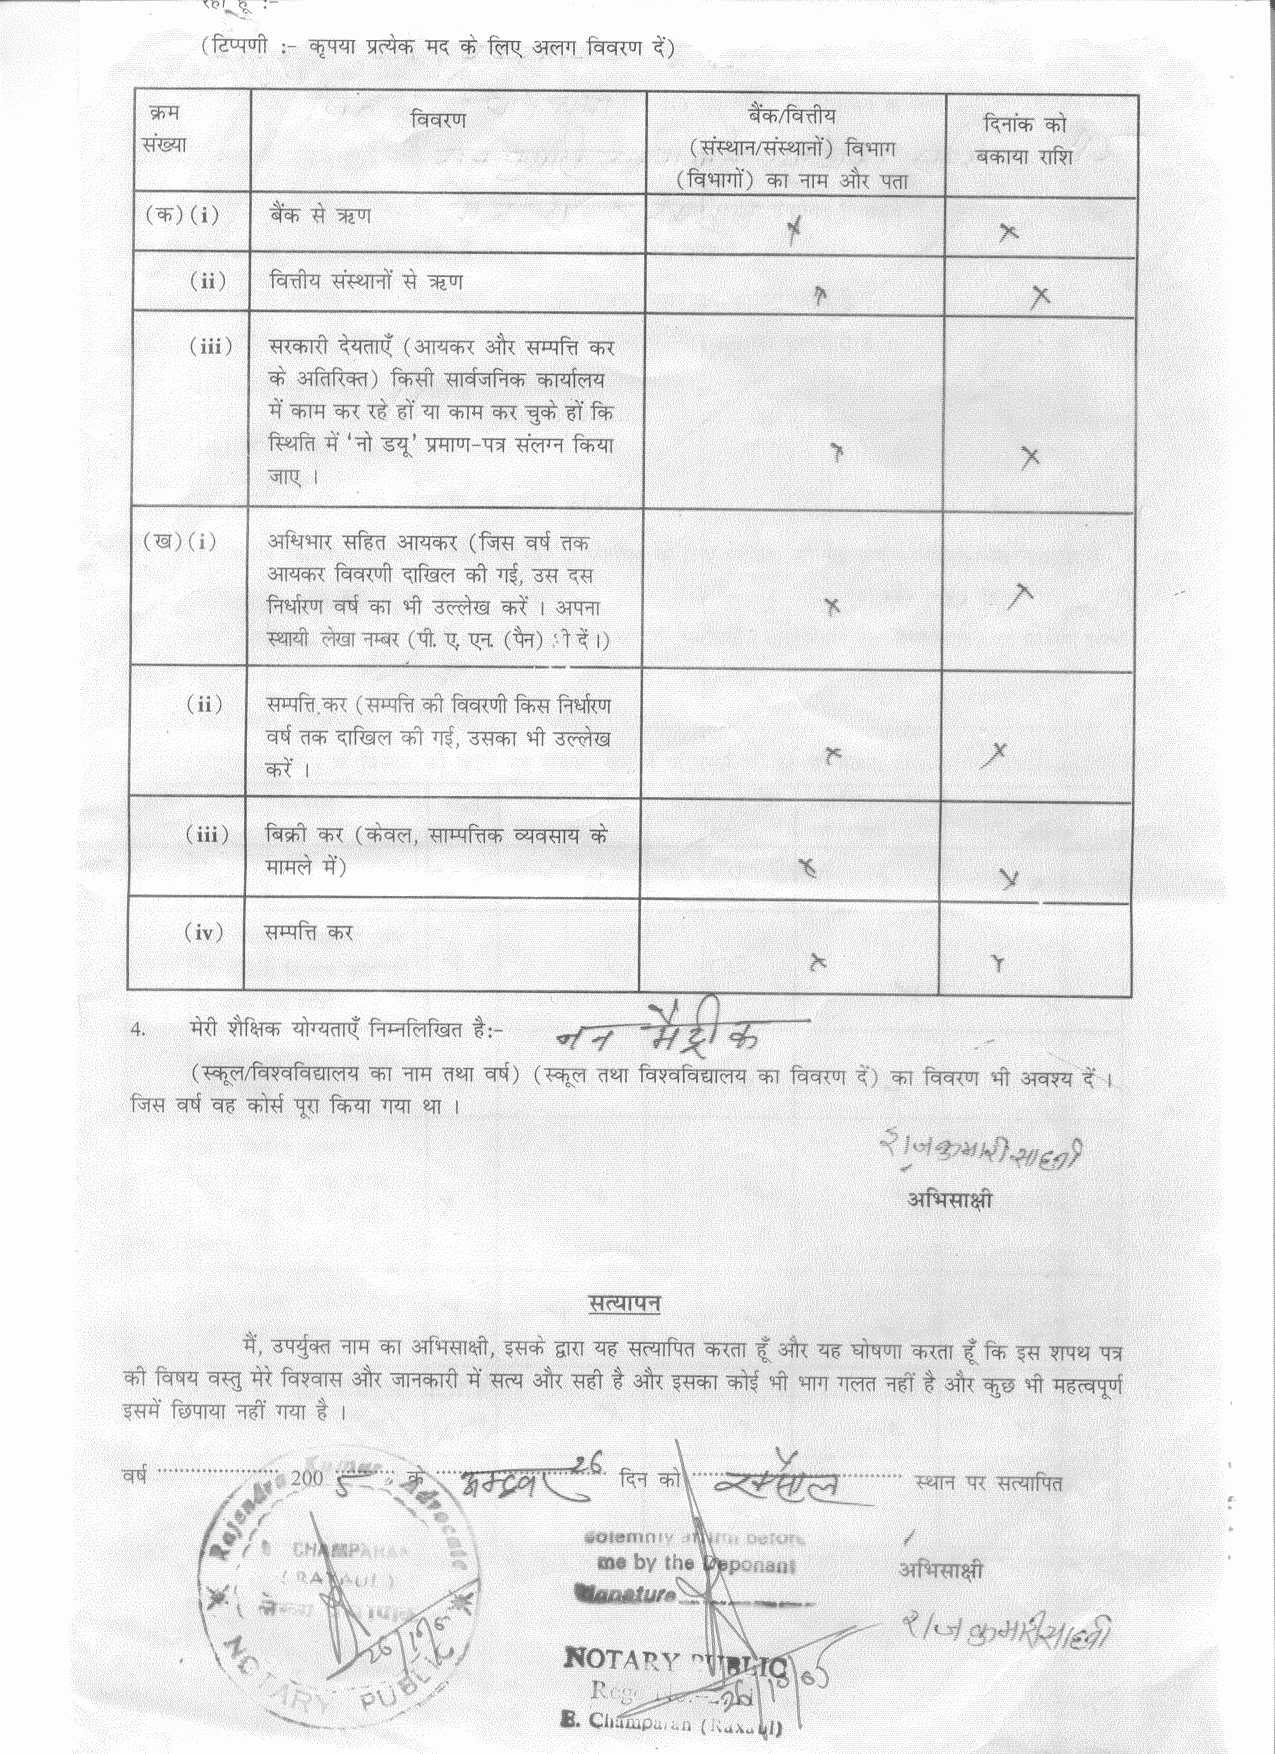 रहा हूँ :-
(टिप्पणी :- कृपया प्रत्येक मद के लिए अलग विवरण दें)
क्रम संख्या
विवरण
बैंक/वित्तीय
(संस्थान/संस्थानों) विभाग
(विभागों) का नाम और पता
दिनांक को
बकाया राशि
(क)(i) बैंक से ऋण x x
(ii) वित्तीय संस्थानों से ऋण x x
(iii) सरकारी देयताएँ (आयकर और सम्पत्ति कर
के अतिरिक्त) किसी सार्वजनिक कार्यालय
में काम कर रहे हों या काम कर चुके हों कि
स्थिति में 'नो डयू' प्रमाण-पत्र संलग्न किया x x
जाए ।
(ख)(i) अधिभार सहित आयकर (जिस वर्ष तक
आयकर विवरणी दाखिल की गई, उस दस
निर्धारण वर्ष का भी उल्लेख करें । अपना x x
स्थायी लेखा नम्बर (पी. ए. एन. (पैन) दें।)
(ii) सम्पत्ति कर (सम्पत्ति की विवरणी किस निर्धारण
वर्ष तक दाखिल की गई, उसका भी उल्लेख x x
करें ।
(iii) बिक्री कर (केवल, साम्पत्तिक व्यवसाय के
मामले में) x x
(iv) सम्पत्ति कर x x
4. मेरी शैक्षिक योग्यताएँ निम्नलिखित है:- नन मैट्रीक
(स्कूल/विश्वविद्यालय का नाम तथा वर्ष) (स्कूल तथा विश्वविद्यालय का विवरण दें) का विवरण भी अवश्य दें ।
जिस वर्ष वह कोर्स पूरा किया गया था ।
राजकुमारी साहनी
अभिसाक्षी
सत्यापन
मैं, उपर्युक्त नाम का अभिसाक्षी, इसके द्वारा यह सत्यापित करता हूँ और यह घोषणा करता हूँ कि इस शपथ पत्र
की विषय वस्तु मेरे विश्वास और जानकारी में सत्य और सही है और इसका कोई भी भाग गलत नहीं है और कुछ भी महत्वपूर्ण
इसमें छिपाया नहीं गया है ।
वर्ष 2005 के 26 दिन को रक्सौल स्थान पर सत्यापित
Rajendra Kumar Advocate
CHAMPARAN
(RAXAUL)
NOTARY PUBLIC
Solemnly affirm before
me by the Deponant
Signature
अभिसाक्षी
राजकुमारी साहनी
NOTARY PUBLIC
E. Champaran (Raxaul)